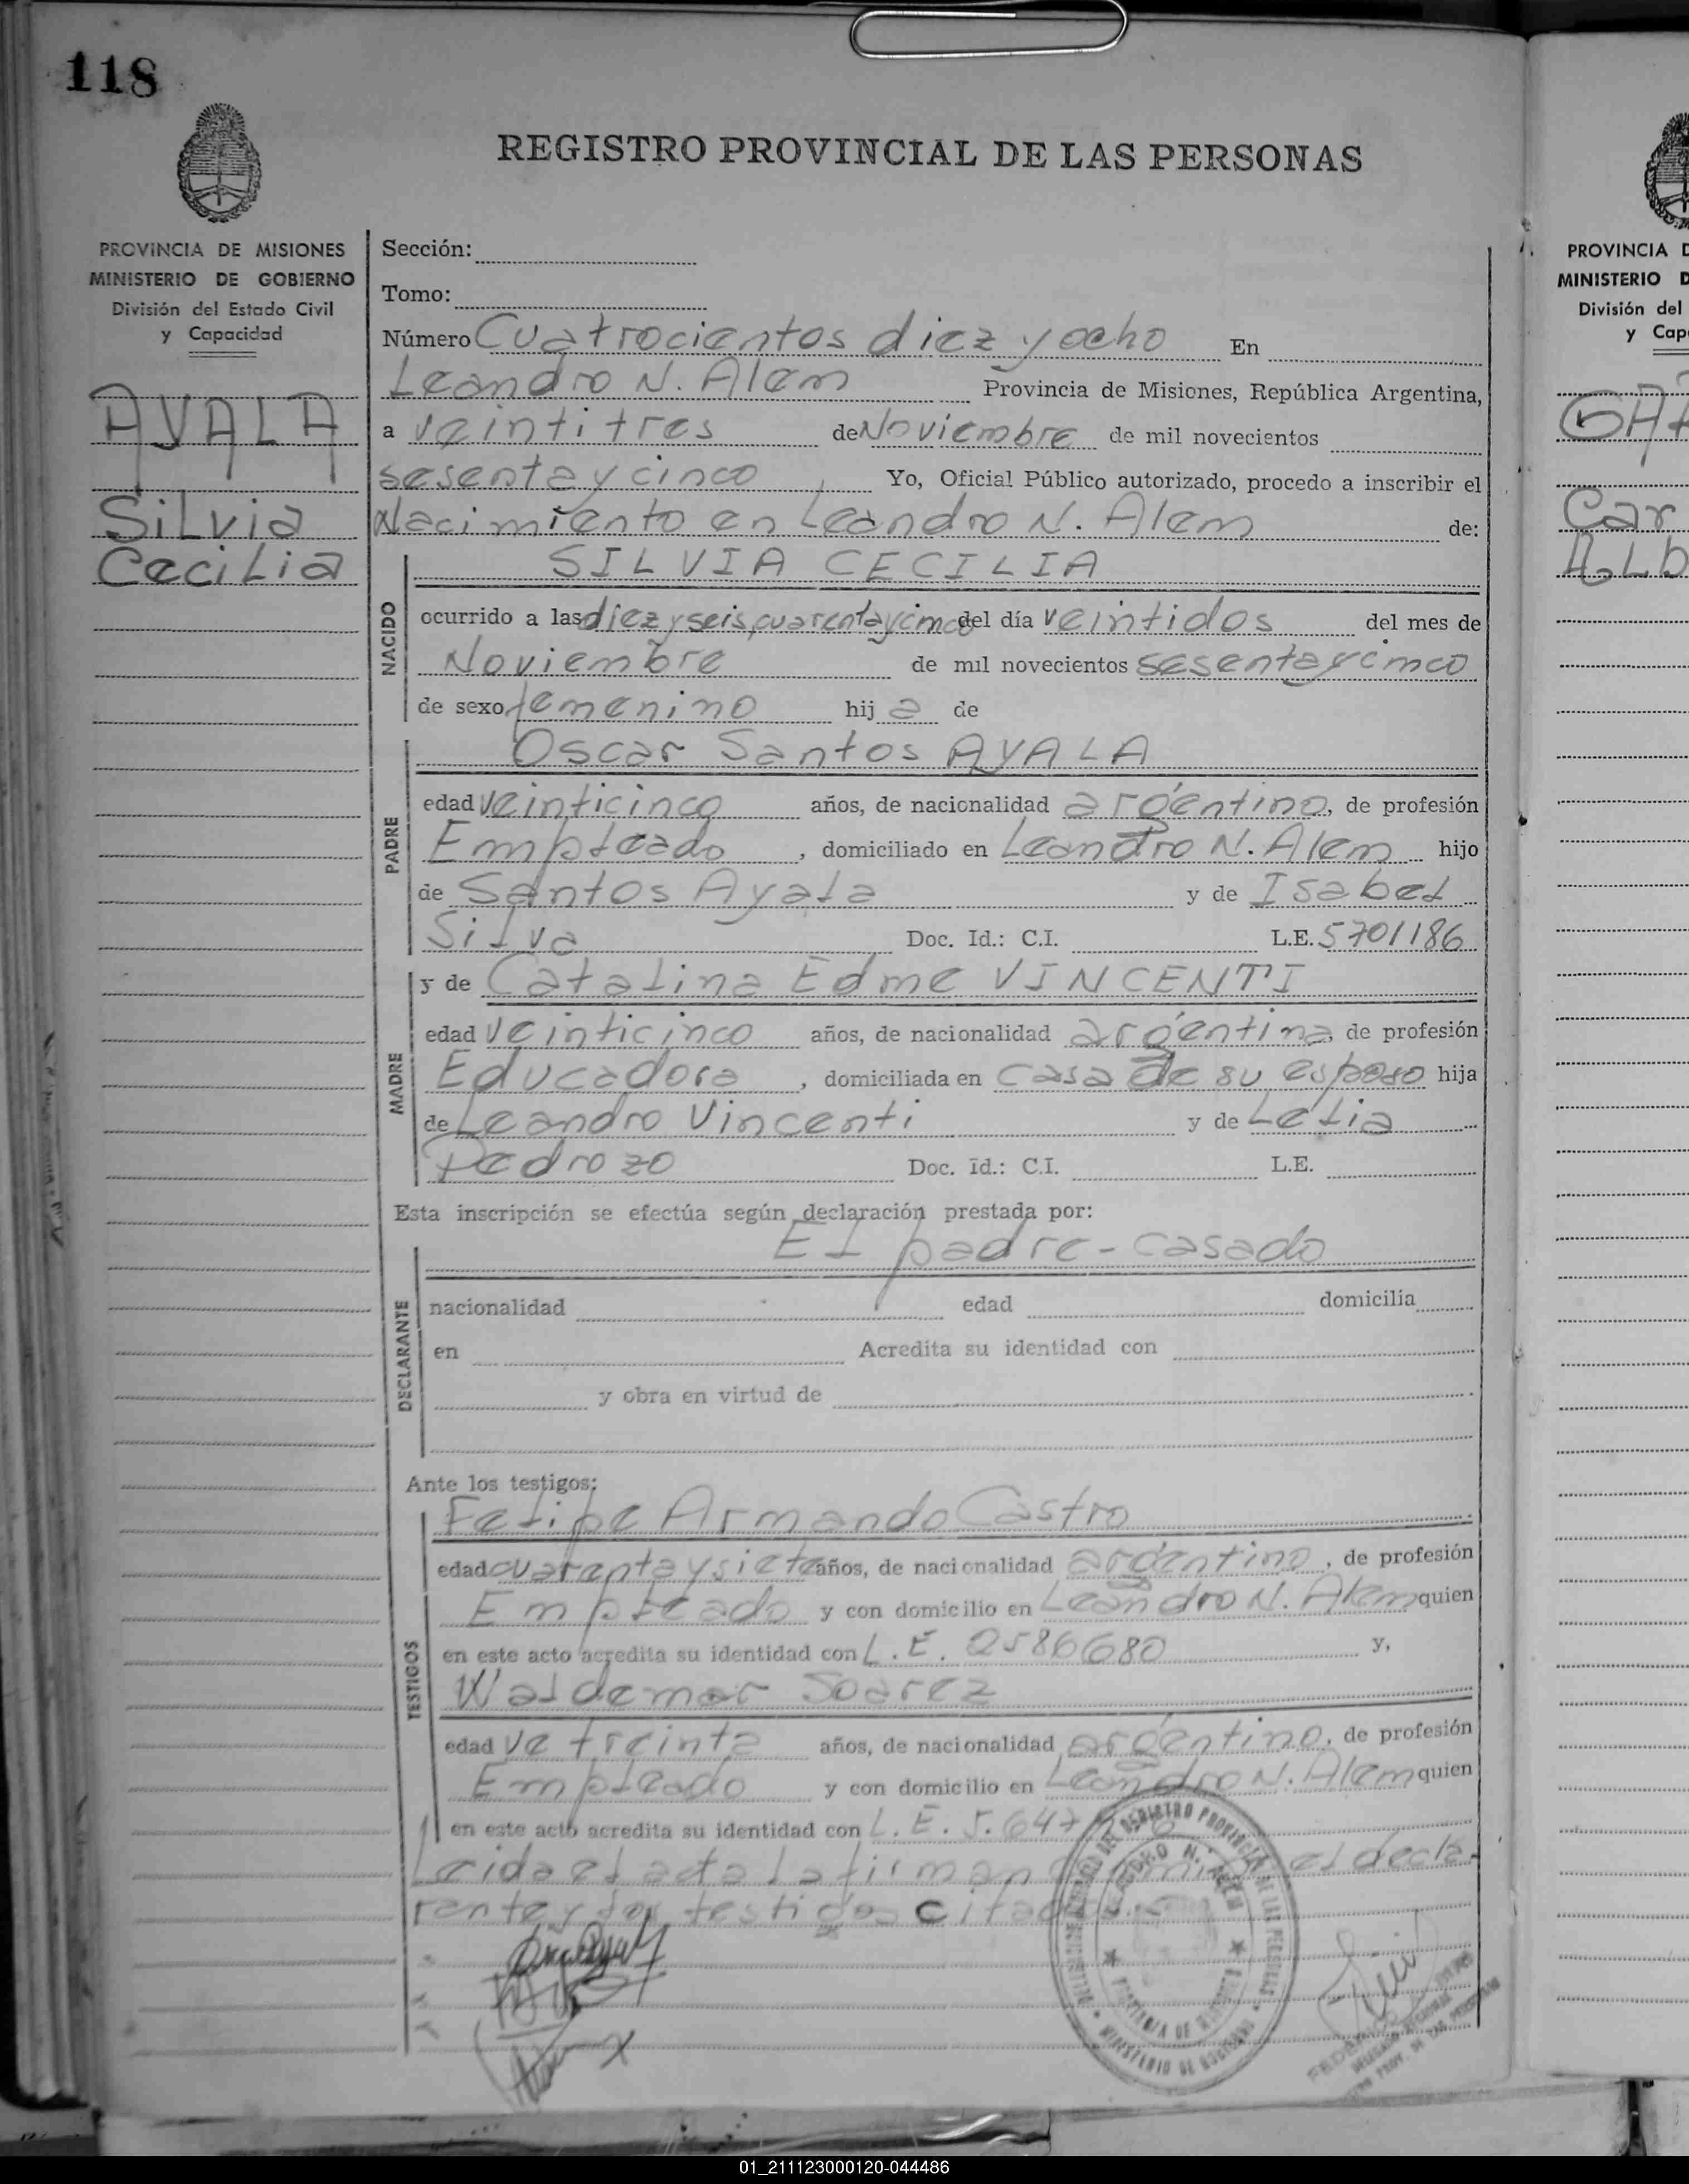 118
REGISTRO PROVINCIAL DE LAS PERSONAS
PROVINCIA DE MISIONES
MINISTERIO DE GOBIERNO
División del Estado Civil
y Capacidad
AYALA
Silvia
Cecilia
Sección:
Tomo:
Número Cuatrocientos diez y ocho En
Leandro N. Alem Provincia de Misiones, República Argentina,
a veintitres de Noviembre de mil novecientos
sesenta y cinco Yo, Oficial Público autorizado, procedo a inscribir el
Nacimiento en Leandro N. Alem de:
NACIDO
SILVIA CECILIA
ocurrido a las diez y seis, cuarenta y cinco del día veintidos del mes de
Noviembre de mil novecientos sesenta y cinco
de sexo femenino hij a de
PADRE
Oscar Santos AYALA
edad veinticinco años, de nacionalidad argentino, de profesión
Empleado, domiciliado en Leandro N. Alem hijo
de Santos Ayala y de Isabel
Silva Doc. Id.: C.I. L.E. 5701186
MADRE
y de Catalina Edme VINCENTI
edad veinticinco años, de nacionalidad argentina, de profesión
Educadora, domiciliada en casa de su esposo hija
de Leandro Vincenti y de Lelia
Pedrozo Doc. Id.: C.I. L.E.
Esta inscripción se efectúa según declaración prestada por:
DECLARANTE
El padre - casado
nacionalidad edad domicilia
en Acredita su identidad con
y obra en virtud de
Ante los testigos:
TESTIGOS
Felipe Armando Castro
edad cuarenta y siete años, de nacionalidad argentino, de profesión
Empleado y con domicilio en Leandro N. Alem quien
en este acto acredita su identidad con L.E. 2586680 y,
Waldemar Soarez
edad ve treinta años, de nacionalidad argentino, de profesión
Empleado y con domicilio en Leandro N. Alem quien
en este acto acredita su identidad con L.E. 5.647
Leida el acta la firman el decla-
rante y los testigos citados.-
LEANDRO N. ALEM
PROVINCIA DE MISIONES
MINISTERIO DE GOBIERNO
PROVINCIA D
MINISTERIO D
División del
y Cap
Car
ALb
01_211123000120-044486